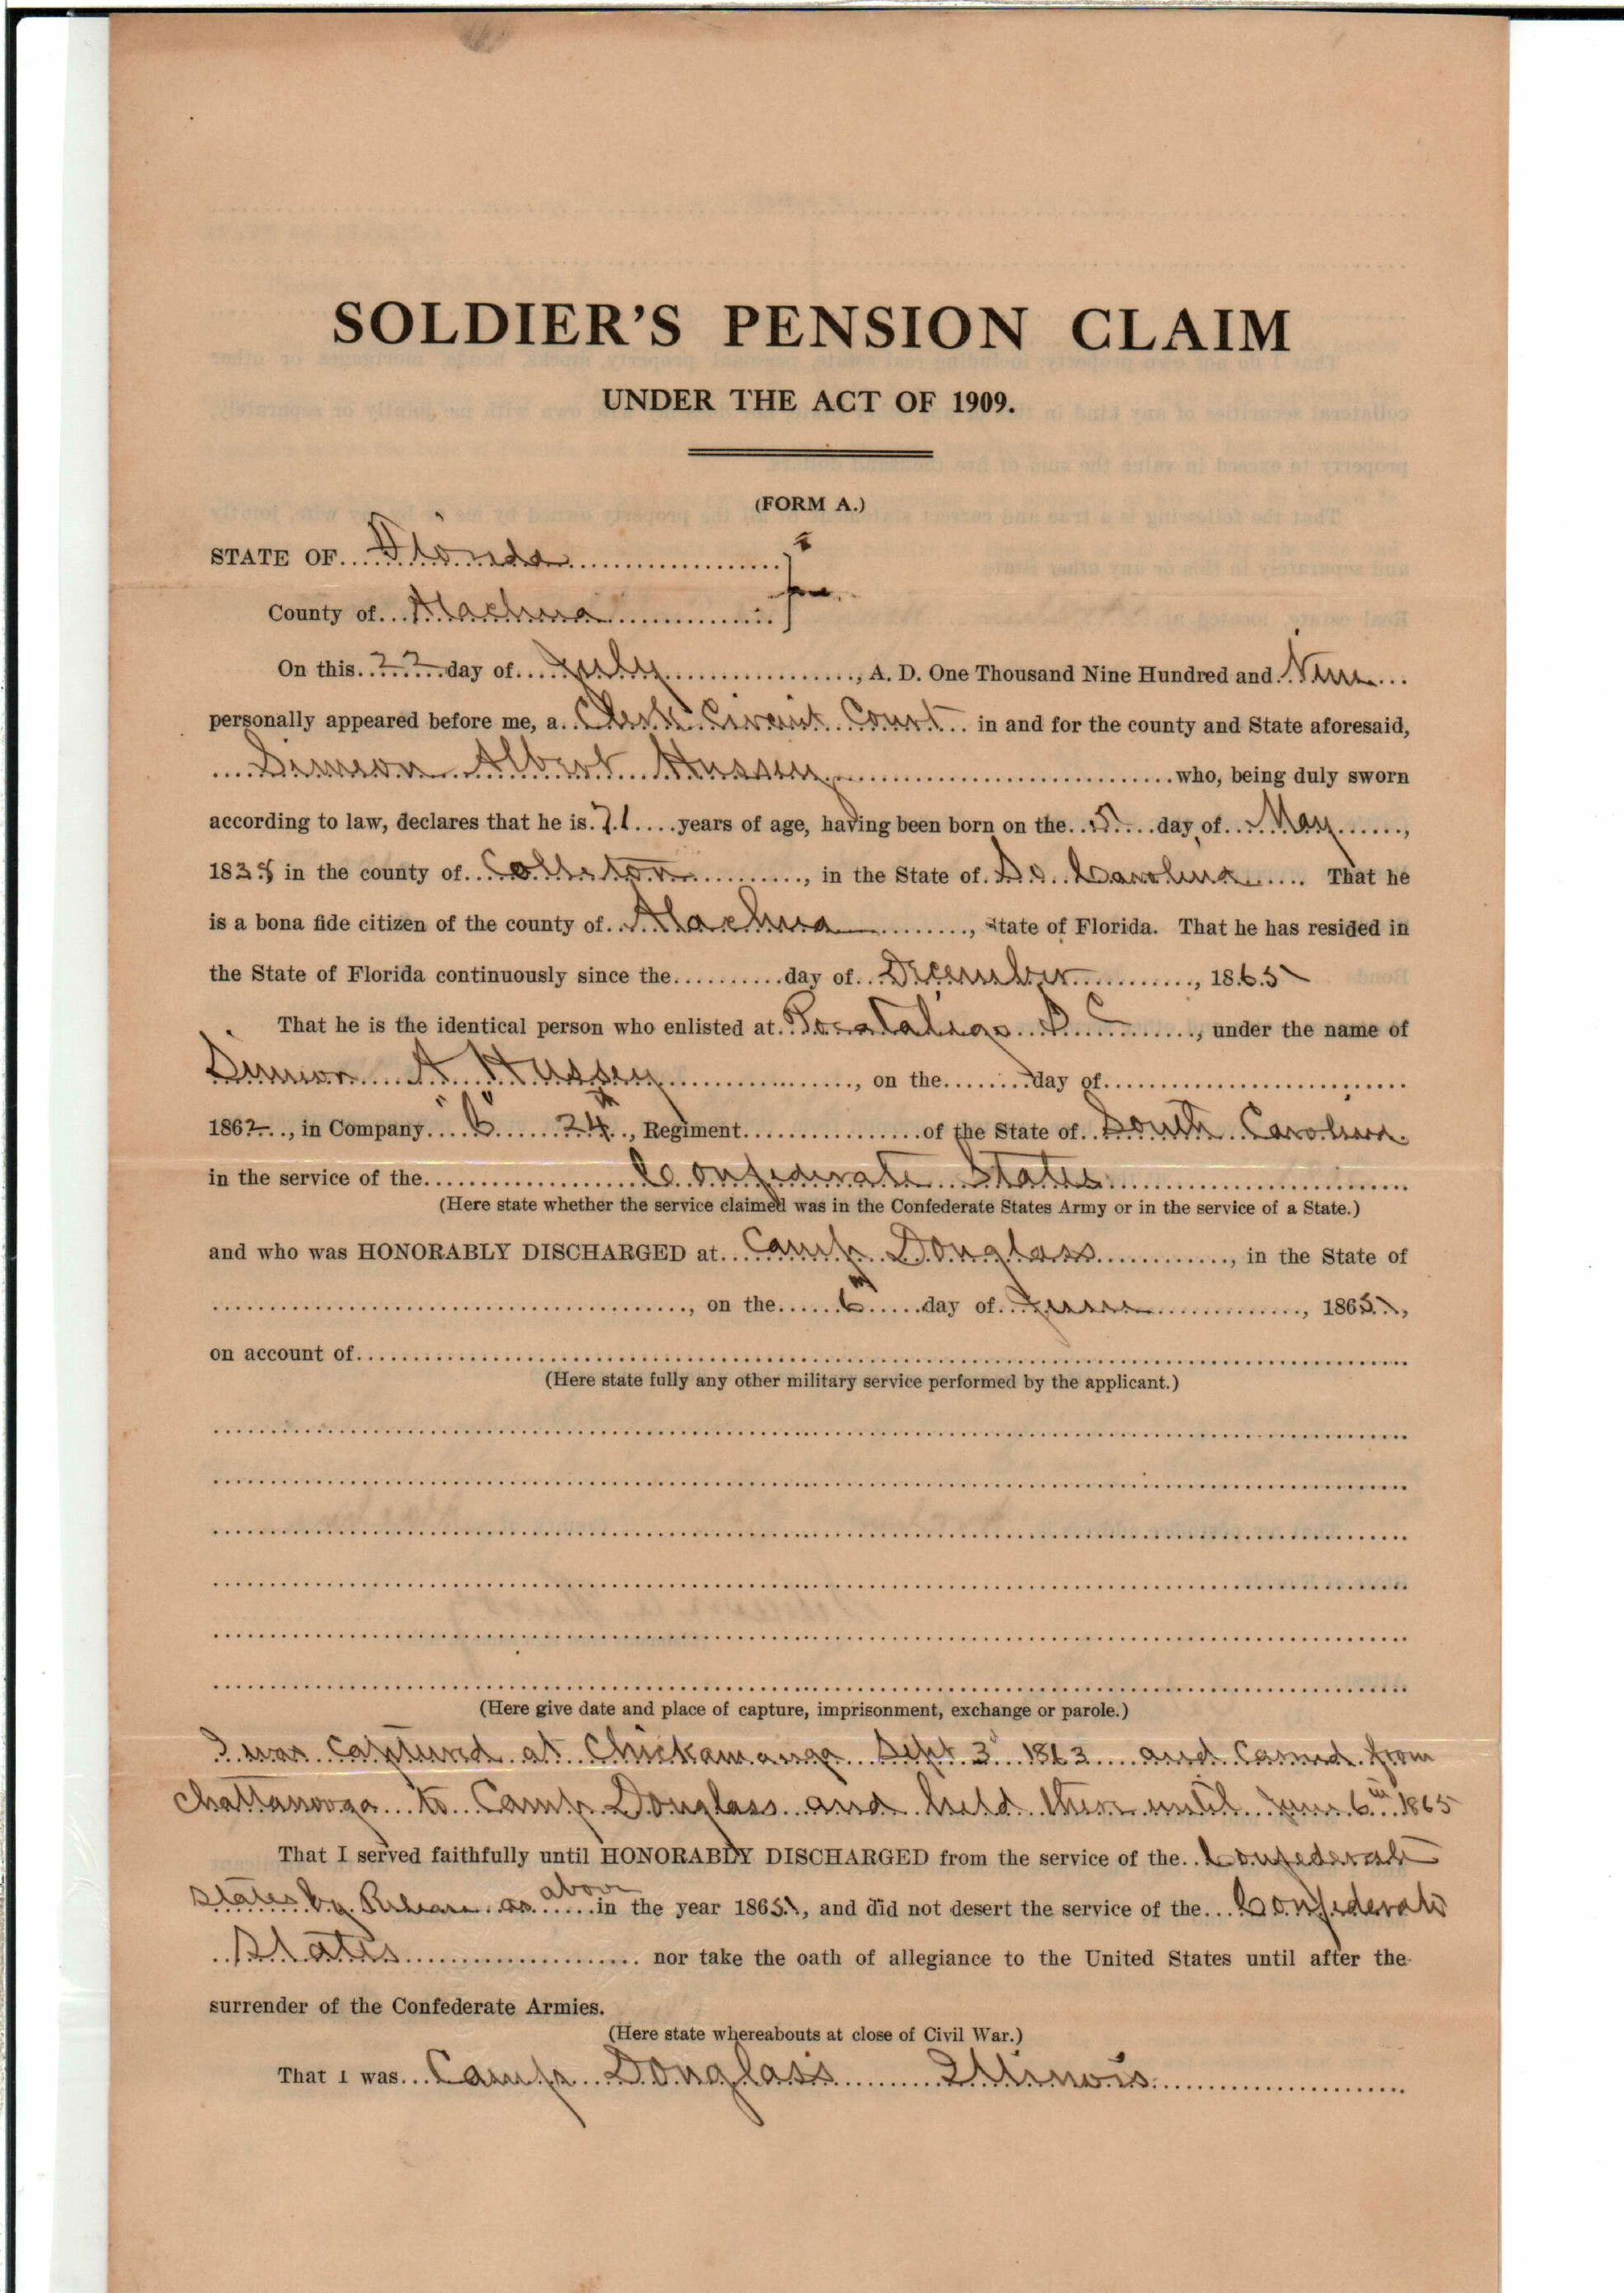 SOLDIER'S PENSION CLAIM
UNDER THE ACT OF 1909.
(FORM A.)
STATE OF Florida
County of Alachua
On this 22 day of July, A. D. One Thousand Nine Hundred and Nine
personally appeared before me, a Clerk Circuit Court in and for the county and State aforesaid,
Simeon Albert Hussey who, being duly sworn
according to law, declares that he is 71 years of age, having been born on the 5 day of May,
1838 in the county of Colleton, in the State of So. Carolina That he
is a bona fide citizen of the county of Alachua, State of Florida. That he has resided in
the State of Florida continuously since the day of December, 1865
That he is the identical person who enlisted at Pocataligo S C, under the name of
Simeon A Hussey, on the day of
1862, in Company 24th, Regiment of the State of South Carolina
in the service of the Confederate States
(Here state whether the service claimed was in the Confederate States Army or in the service of a State.)
and who was HONORABLY DISCHARGED at Camp Douglass, in the State of
, on the 6th day of June, 1865,
on account of
(Here state fully any other military service performed by the applicant.)
(Here give date and place of capture, imprisonment, exchange or parole.)
I was captured at Chickamauga Sept 3d 1863 and carried from
Chattanooga to Camp Douglass and held there until June 6th 1865
That I served faithfully until HONORABLY DISCHARGED from the service of the Confederate
States by Release as above in the year 1865, and did not desert the service of the Confederate
States nor take the oath of allegiance to the United States until after the
surrender of the Confederate Armies.
(Here state whereabouts at close of Civil War.)
That I was Camp Douglass Illinois